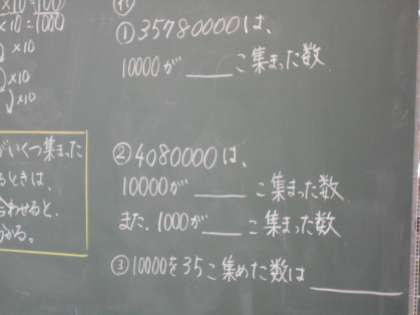 ×10=100
×10=1000
×10
×10
×10
がいくつ集まった
るときは、
合わせると、
かる。
① 35780000は、
10000が ____ こ集まった数
② 4080000は、
10000が ____ こ集まった数
また、1000が ____ こ集まった数
③ 10000を35こ集めた数は ____